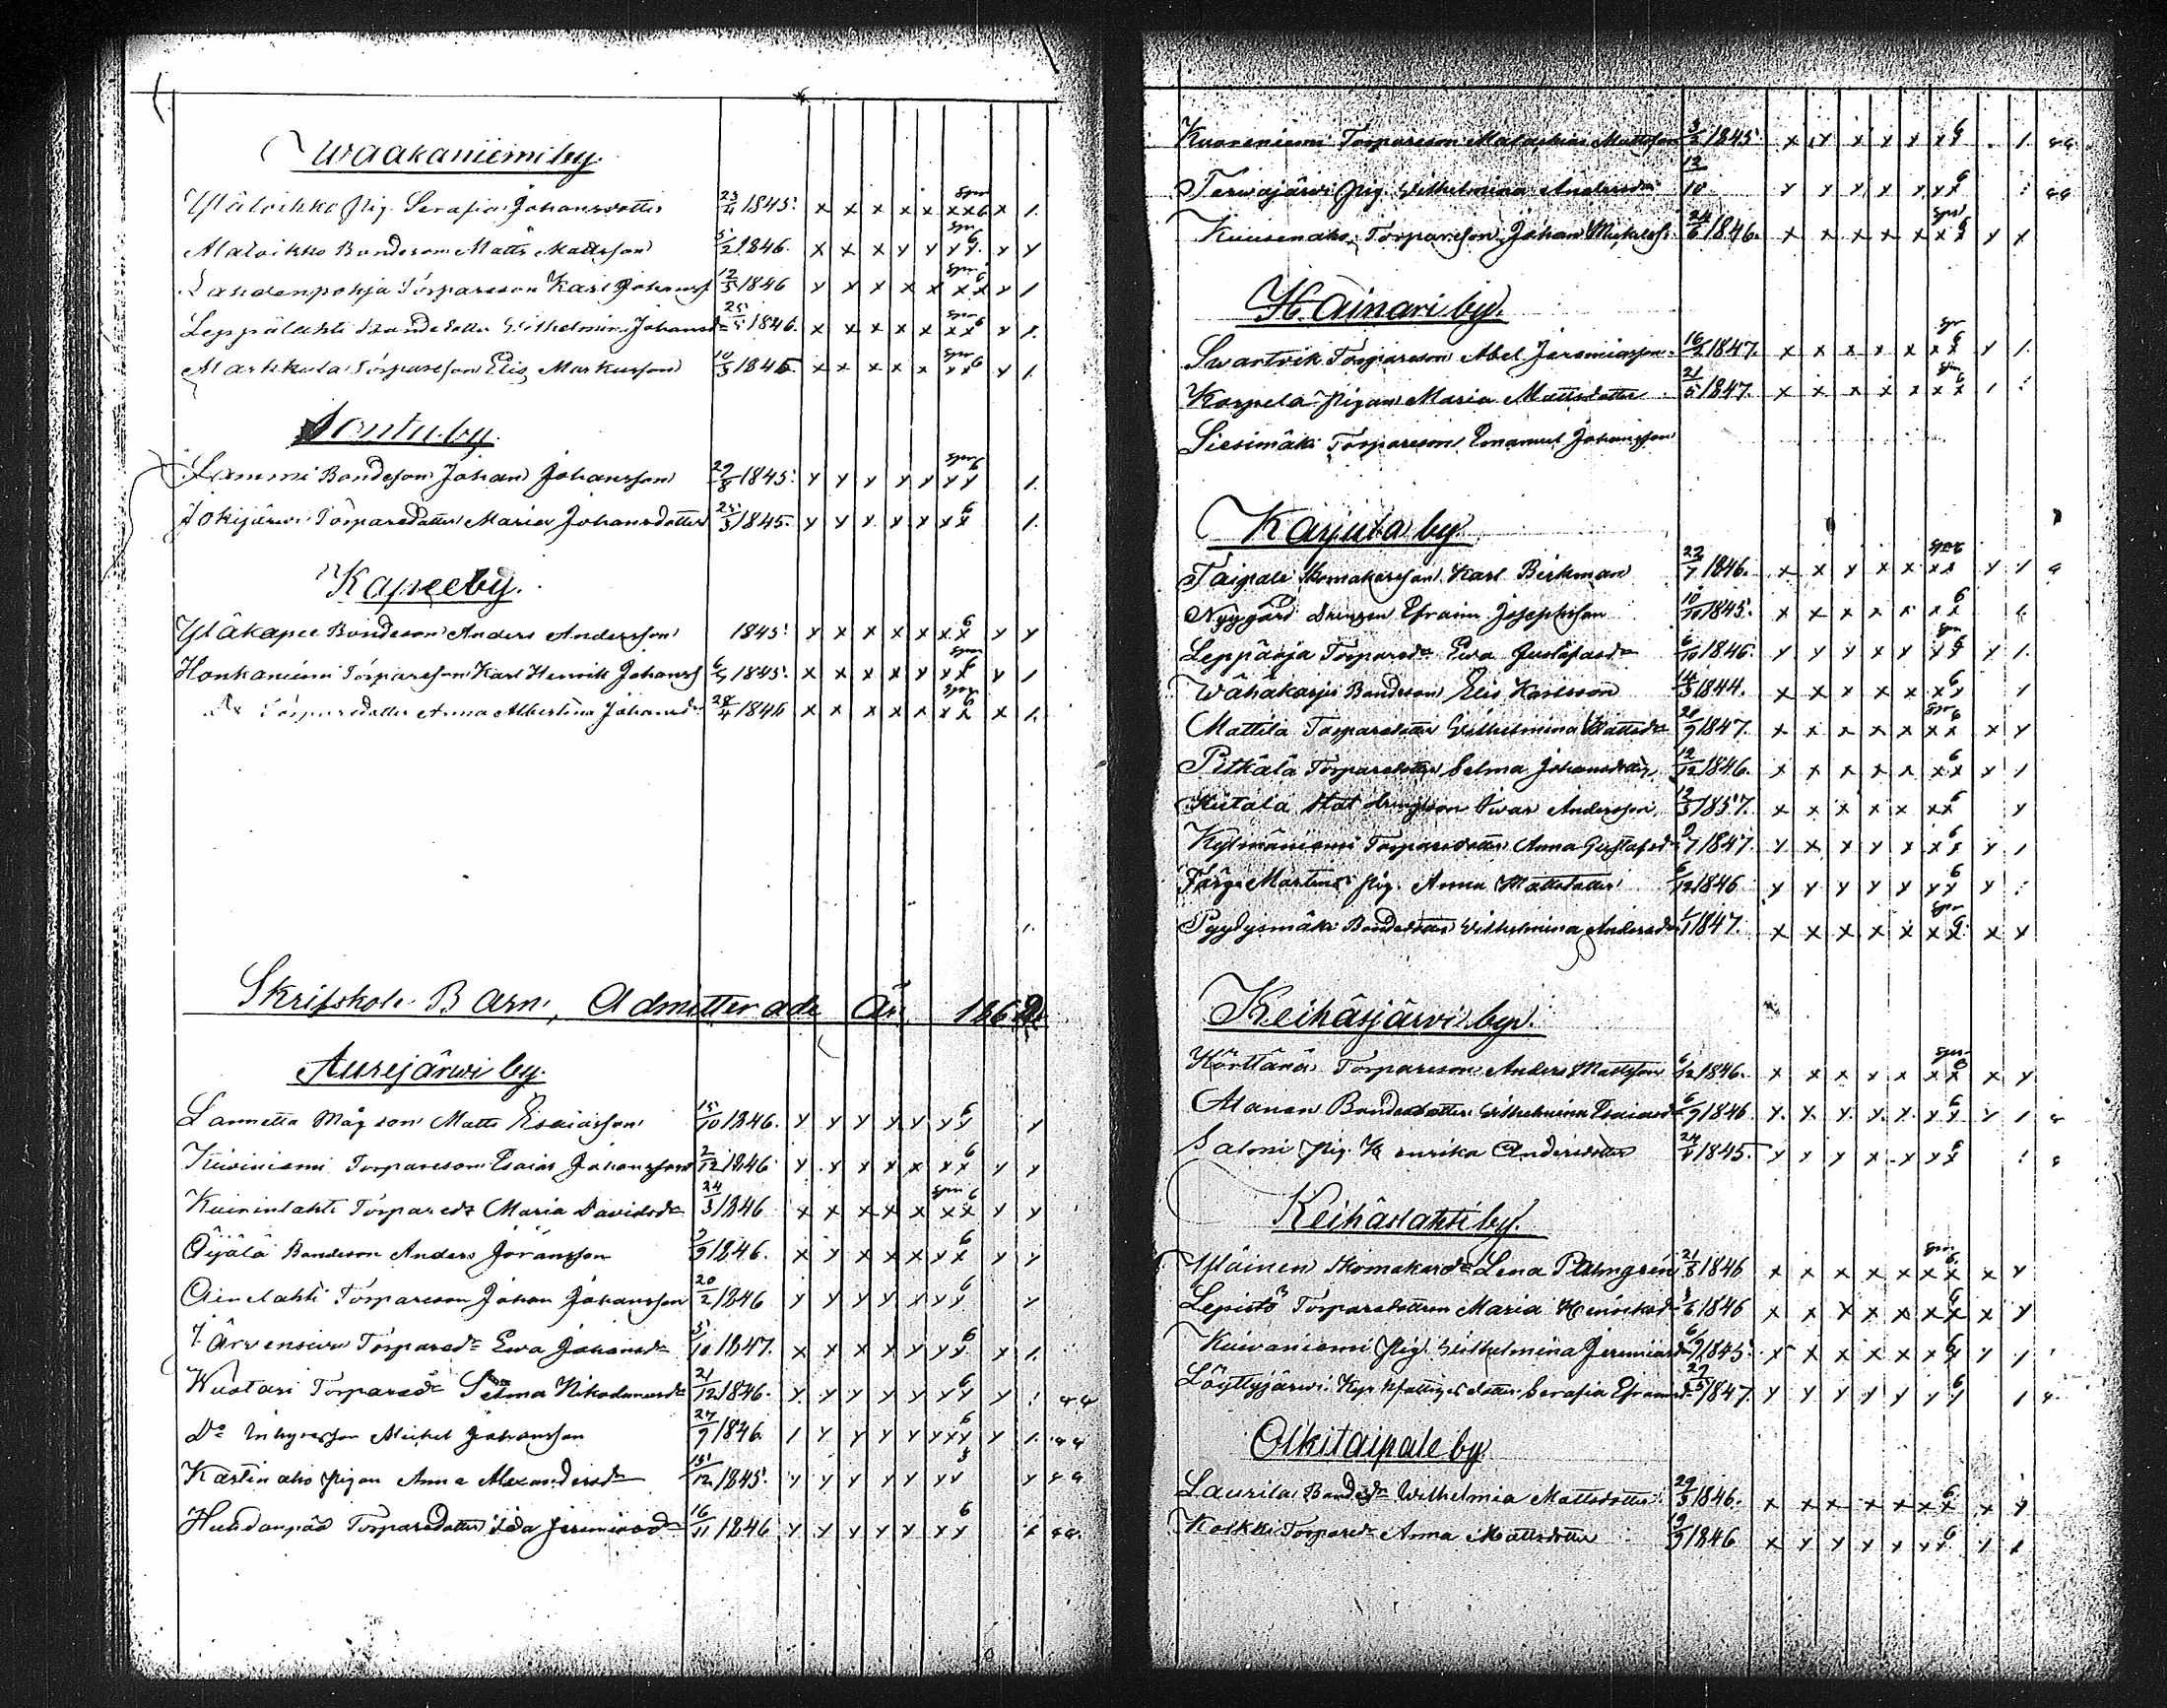 Waakaniemi by
Yläloikko Pig. Serafia Johansdotter 23/4 1845. x x x x x xx6 x 1.
Alaloikko Bondeson Matts Mattsson 5/2 1846. x x x y y yy6 y y
Lahdenpohja Torpareson Karl Johanss 12/5 1846 y x x x x xx6 y 1
Leppälahti Bondedotter Wilhelmina Johansdr 25/5 1846. x x x x x xx6 y 1.
Markkula Torpareson Elis Markusson 10/3 1845. x x x x x xx6 y 1.
Pentu by.
Lammi Bondeson Johan Johansson 29/8 1845. y y y y y yy6 1.
Jokijärwi Torparedotter Maria Johansdotter 25/3 1845. y y y y y xx6 1.
Kapee by.
Yläkapee Bondeson Anders Andersson 1845. y x x x x xx6 y y
Honkaniemi Torpareson Karl Henrik Johanss 1845. x x x x y yx6 y 1
Do Torparedotter Anna Albertina Johansdr 28/4 1846 x x x x x xx6 x 1.
Skriftskole Barn, Admitterade År, 1862.
Aurejärwi by.
Lannetta Mågson Matts Esaiasson 15/10 1846. y y y y y yy6 y
Kiwiniemi Torpareson Esaias Johansson 2/12 1846 y y x x x xx6 y y
Kuninlahti Torparedr Maria Davidsdr 24/3 1846 x x x x x xx6 y y
Öijälä Bondeson Anders Göransson 3/9 1846. x y x x x xx6 y y
Ainelahti Torpareson Johan Johansson 20/2 1846 y y y y y yy6 y
Järvensivu Torparedr Ewa Johansdr 5/10 1847. x x x x x yy6 y 1.
Kuotari Torparedr Selma Nikodemusdr 21/12 1846. y y y y y yy6 y
Do Inhyseson Mickel Johansson 27/9 1846. 1 y y y y yy6 y 1.
Kastinaho Pigan Anna Alexandersdr 15/12 1845. y y y y y yy5 y
Huhdanpää Torparedotter Ida Jeremiasdr 16/11 1846 y y y y y yy6
Kuoreniemi Torpareson Malakias Mattsson 3/2 1845. x y x x x xy6 1
Terwajärvi Pig. Wilhelmina Andersdr 12/10 y y y y y yx6
Kuusenaho Torpareson Johan Mickelss. 24/6 1846. x x x x x xx6 y y
Hainari by.
Swartvik Torpareson Abel Jeremiasson 16/2 1847. x x x x x xx6 y 1.
Karpela Pigan Maria Mattsdotter 21/5 1847. x x x x x xx6 1
Siesimäki Torpareson Emanuel Johansson
Karjula by.
Taipale Skomakareson Karl Birkman 22/7 1846. x x y x x xx y y
Nygård Drengen Efraim Josephsson 10/10 1845. x x x x x xx6
Leppäoja Torparedr Ewa Gustafsdr 6/10 1846. y y y x y yy6 y 1.
Wähäkarju Bondeson Elis Karlsson 14/3 1844. x x x x x xy6 y
Mattila Torparedotter Wilhelmina Mattsdr 20/9 1847. x x x x x xx6 x y
Pitkälä Torparedotter Selma Johansdotter 12/12 1846. x x x x x xx6 x 1
Kiitala Statdrengson Iwar Andersson 12/3 1857. x x x x x xx6 y
Kylmäniemi Torparedotter Anna Gustafsdr 2/7 1847. y x y y x xx6 y 1
Färge Martins Pig. Anna Mattsdotter 12 1846 y y y y y yy6 y
Pyydysmäki Bondedotter Wilhelmina Andersdr 1847. x x x x x xx6 x y
Keihäsjärvi by.
Körttänä Torpareson Anders Mattsson 6/12 1846. x x x x x xx6 x y
Alanen Bondedotter Wilhelmina Esaiasdr 6/9 1846 y y y y y yy6 y 1
Salmi Pig. Henrika Andersdotter 24/4 1845. y y y x y yx6
Keihäslahti by.
Yläinen Skomakaredr Lena Palmgrén 21/8 1846 x x x x x xx6 x y
Lepistö Torparedottren Maria Henriksdr 1846 x x x x x xx6 x y
Kuiwaniemi Pig. Wilhelmina Jeremiasdr 6/9 1845. x x x x x xx6 y 1
Löyttyjärwi Kyrkfattiges dotter Serafia Eframsdr 27/5 1847 y y y y y yy6 1
Olkitaipale by
Laurila Bondedr Wilhelmia Mattsdotter 29/3 1846. x x x x x xx6 x y
Kolkki Torparedr Anna Mattsdotter 19/3 1846 x y y y y yy6 1 x